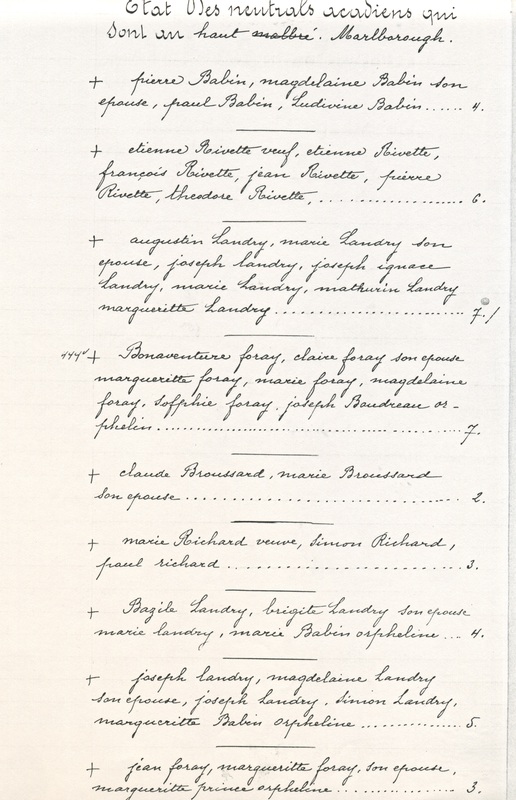 Etat Des neutrals acadiens qui
Sont au haut malbré. Marlborough.
+ pierre Babin, magdelaine Babin son
epouse, paul Babin, Ludivine Babin...... 4.
+ etienne Rivette veuf, etienne Rivette,
françois Rivette, jean Rivette, pierre
Rivette, theodore Rivette, ...................... 6.
+ augustin Landry, marie Landry son
epouse, joseph landry, joseph ignace
Landry, marie Landry, mathurin Landry
margueritte Landry ............................. 7./
+ Bonaventure foray, claire foray son epouse
margueritte foray, marie foray, magdelaine
foray, sofphie foray. joseph Boudreau or-
phelin............................................... 7.
+ claude Broussard, marie Broussard
son epouse ......................................... 2.
+ marie Richard veuve, Simon Richard,
paul richard ..................................... 3.
+ Bazile Landry, brigite Landry son epouse
marie landry, marie Babin orpheline ... 4.
+ joseph landry, magdelaine Landry
son epouse, joseph Landry, Simon Landry,
margueritte Babin orpheline ................ 5.
+ jean foray, margueritte foray, son epouse,
margueritte prince orpheline ................ 3.